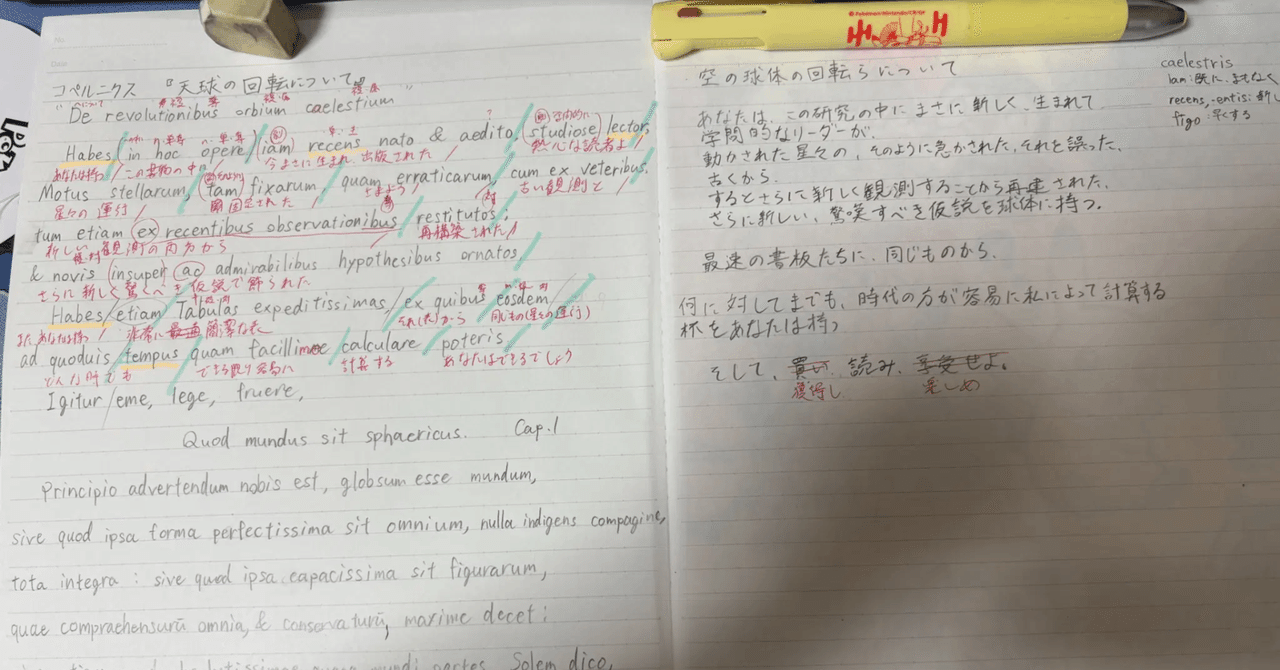 コペルニクス 『天球の回転について』
"De revolutionibus orbium caelestium"
Habes in hoc opere (iam) recens nato & aedito (studiose) lector,
あなたは持つ この書物の中の 今まさに生まれ、出版された 熱心な読者よ
Motus stellarum, (tam) fixarum, quam erraticarum, cum ex veteribus,
星々の運行 固定された さまよう 古い観測と
tum etiam (ex) recentibus observationibus restitutos;
新しい観測の両方から 再構築された
& novis (insuper) (ac) admirabilibus hypothesibus ornatos,
さらに新しく驚くべき仮説で飾られた
Habes etiam Tabulas expeditissimas, ex quibus eosdem
またあなたは持つ 非常に 簡潔な表 それ(表)から 同じもの(星々の運行)
ad quoduis tempus quam facillime calculare poteris.
どんな時でも できる限り容易に 計算する あなたはできるでしょう
Igitur eme, lege, fruere,
Quod mundus sit sphaericus. Cap.1
Principio advertendum nobis est, globsum esse mundum,
sive quod ipsa forma perfectissima sit omnium, nulla indigens compagine,
tota integra : sive quod ipsa capacissima sit figurarum,
quae comprachensurū omnia, & conservaturū, maxime decet :
partes. Solem dico,
空の球体の回転らについて
あなたは、この研究の中にまさに新しく、生まれて
学問的なリーダーが、
動かされた星々の、そのように急かされた、それを誤った、
古くから、
するとさらに新しく観測することから再建された、
さらに新しい、驚嘆すべき仮説を球体に持つ。
最速の書板たちに、同じものから、
何に対してまでも、時代の方が容易に私によって計算する
杯をあなたは持つ
そして、買い、読み、享受せよ。
獲得し 楽しめ
caelestris
iam: 既に、まもなく
recens, -entis: 新し
figo: 早くする